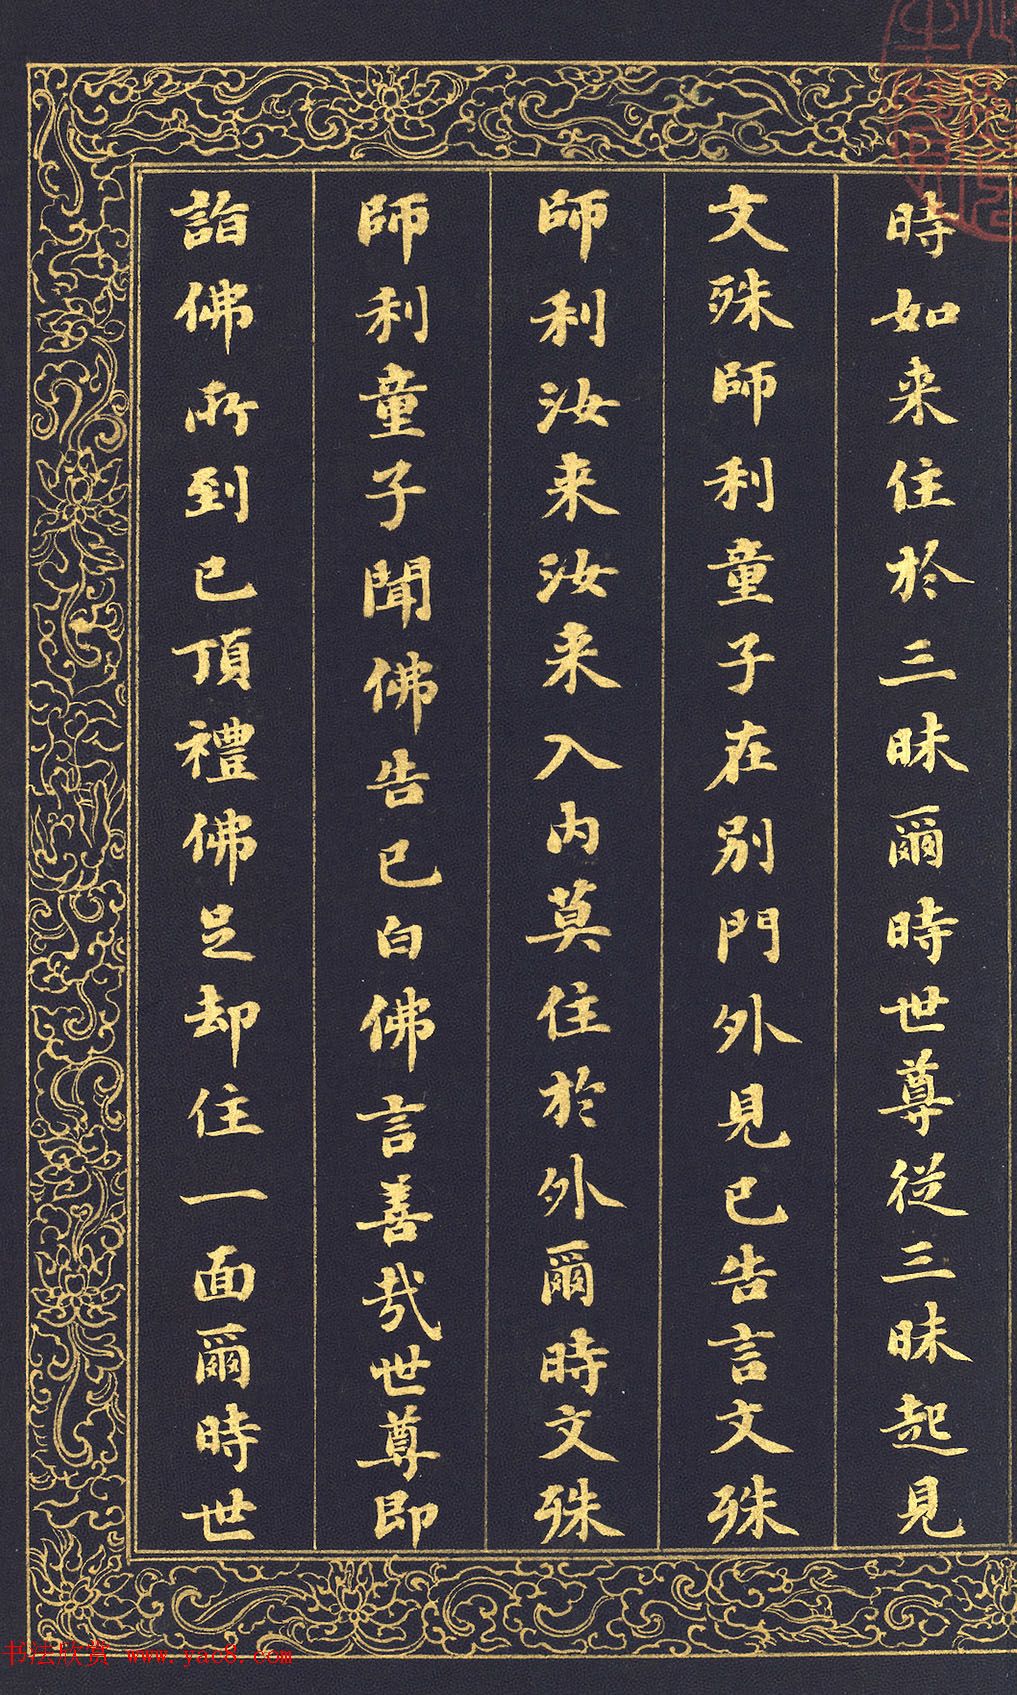 時如来住於三昧爾時世尊從三昧起見
文殊師利童子在別門外見已告言文殊
師利汝来汝来入内莫住於外爾時文殊
師利童子聞佛告已白佛言善哉世尊即
詣佛所到已頂禮佛足却住一面爾時世
书法欣赏 www.yac8.com